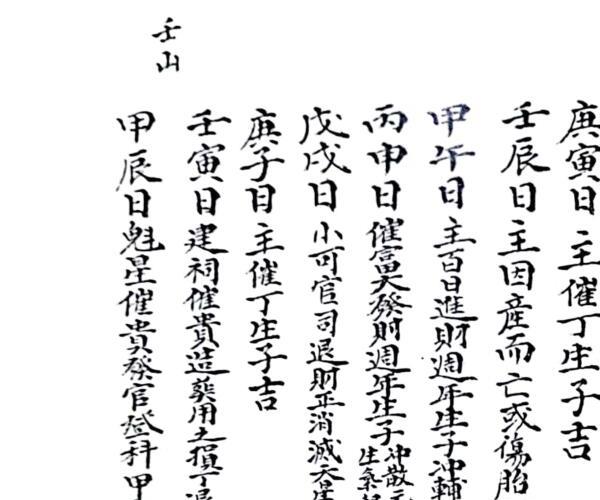 庚寅日主催丁生子吉
壬辰日主因産而亡或傷胎
甲午日主百日進財週年生子沖輔
丙申日催富大發財週年生子沖散
生氣
戊戌日小可官司退財正消滅
庚子日主催丁生子吉
壬寅日建祠催貴造葬用之損丁退
甲辰日魁星催貴發官登科甲
壬山